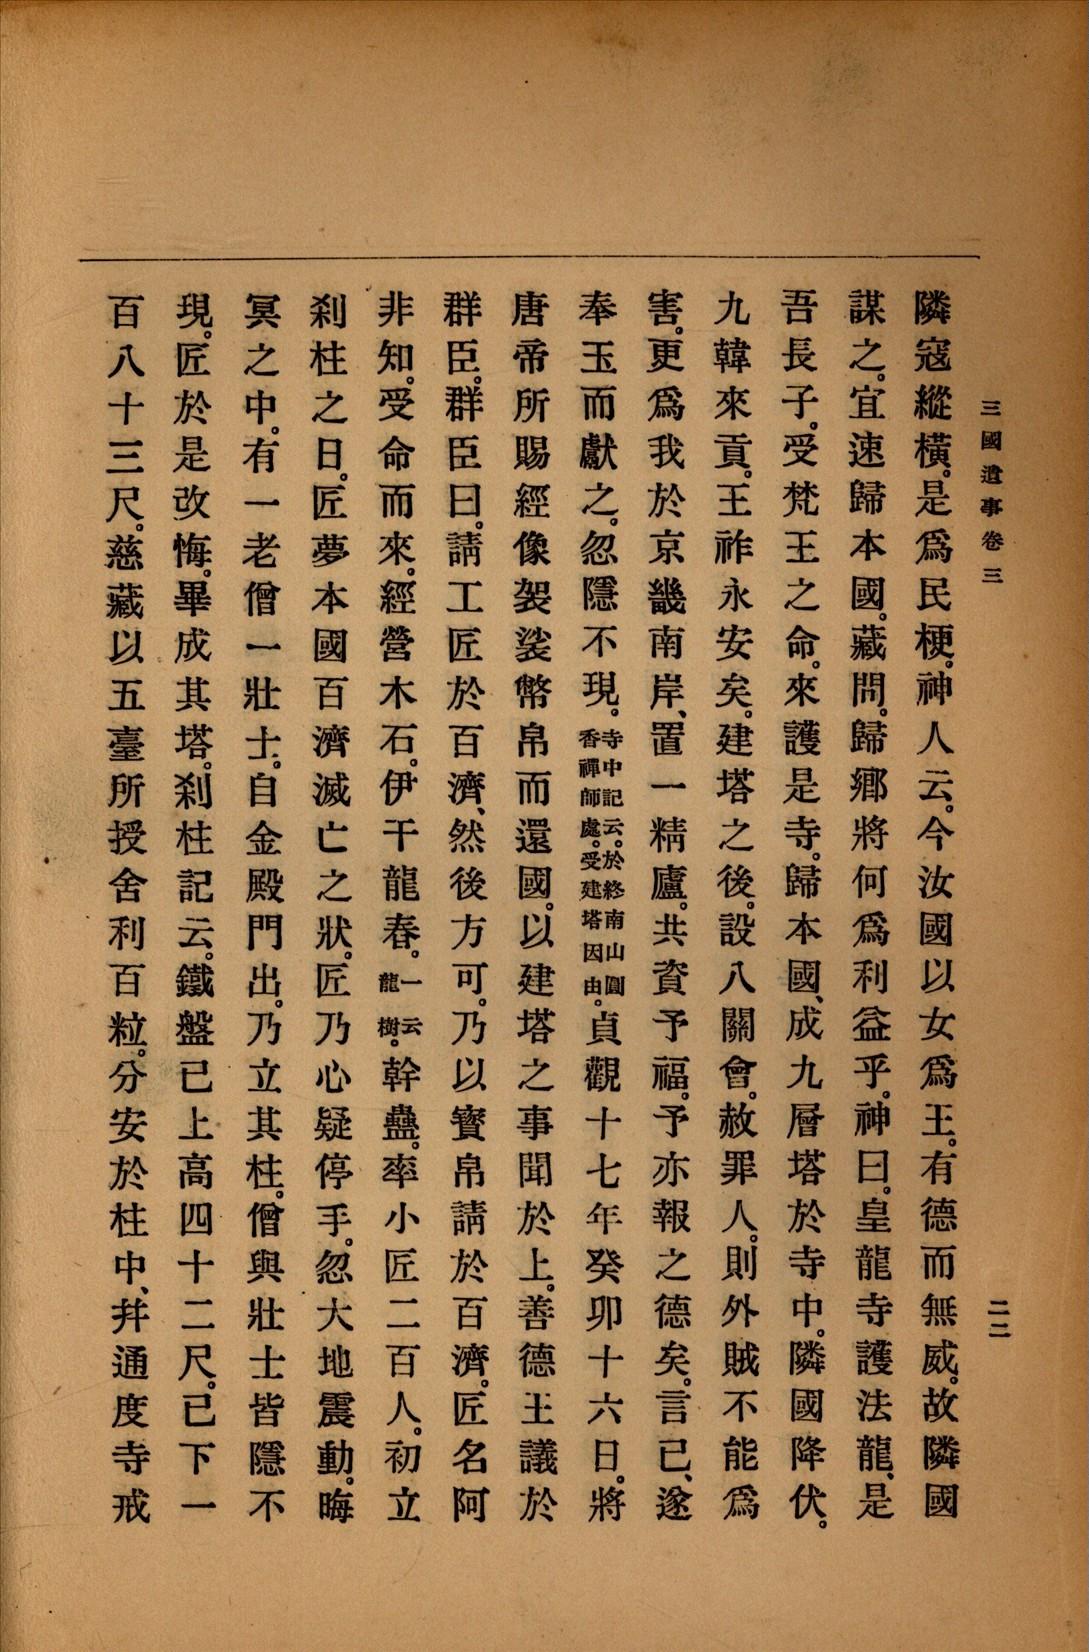 三國遺事卷三
二二
隣寇縱橫。是爲民梗。神人云。今汝國以女爲王。有德而無威。故隣國
謀之。宜速歸本國。藏問。歸鄕將何爲利益乎。神曰。皇龍寺護法龍、是
吾長子。受梵王之命。來護是寺。歸本國、成九層塔於寺中。隣國降伏。
九韓來貢。王祚永安矣。建塔之後。設八關會。赦罪人。則外賊不能爲
害。更爲我於京畿南岸、置一精廬。共資予福。予亦報之德矣。言已、遂
奉玉而獻之。忽隱不現。寺中記云。於終南山圓香禪師處。受建塔因由。貞觀十七年癸卯十六日。將
唐帝所賜經像袈裟幣帛而還國。以建塔之事聞於上。善德王議於
群臣。群臣曰。請工匠於百濟、然後方可。乃以寶帛請於百濟。匠名阿
非知。受命而來。經營木石。伊干龍春。一云龍樹。幹蠱。率小匠二百人。初立
刹柱之日。匠夢本國百濟滅亡之狀。匠乃心疑停手。忽大地震動。晦
冥之中。有一老僧一壯士。自金殿門出。乃立其柱。僧與壯士皆隱不
現。匠於是改悔。畢成其塔。刹柱記云。鐵盤已上高四十二尺。已下一
百八十三尺。慈藏以五臺所授舍利百粒。分安於柱中、幷通度寺戒